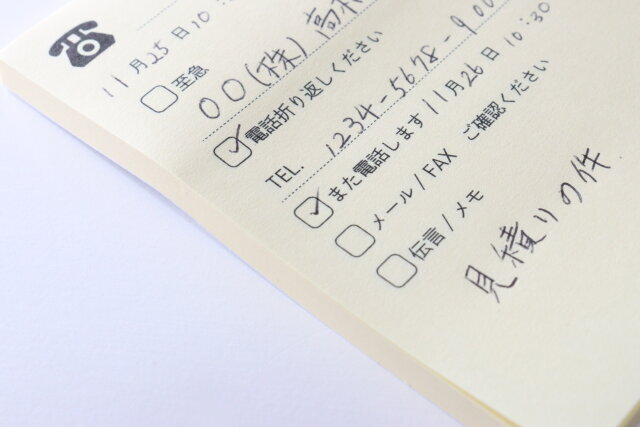 11月25日10:
□至急
○○(株)高木
☑電話折り返しください
TEL. 1234-5678-900
☑また電話します 11月26日 10:30
□メール / FAX ご確認ください
□伝言 / メモ
見積りの件